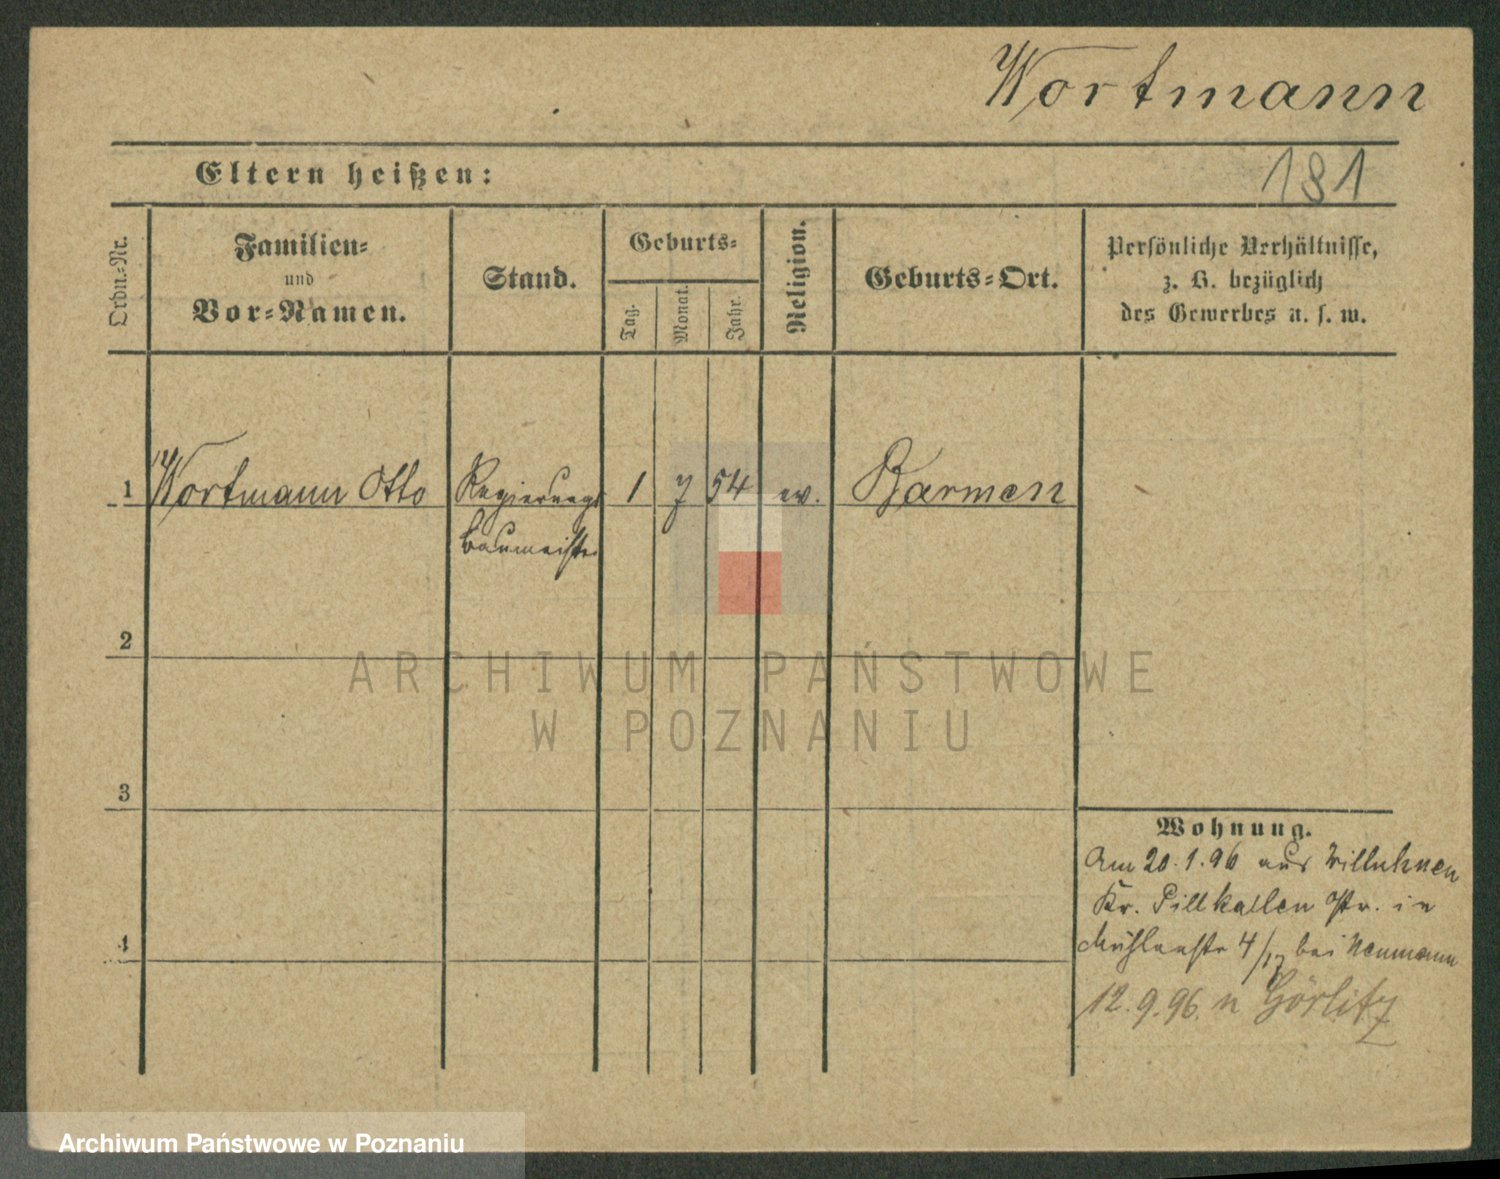 Wortmann
Eltern heißen:
181
Ordn.-Nr.
Familien-
und
Vor-Namen.
Stand.
Geburts-
Tag.
Monat.
Jahr.
Religion.
Geburts-Ort.
Persönliche Verhältnisse,
z. B. bezüglich
des Gewerbes u. s. w.
1 Wortmann Otto Regierungs 1 7 54 ev. Barmen
baumeister
2
3
4
Wohnung.
Am 20.1.96 aus Willuhnen
Kr. Pillkallen Pr. in
Mühlenstr 4/17 bei Neumann
12.9.96. n Görlitz
ARCHIWUM PAŃSTWOWE
W POZNANIU
Archiwum Państwowe w Poznaniu